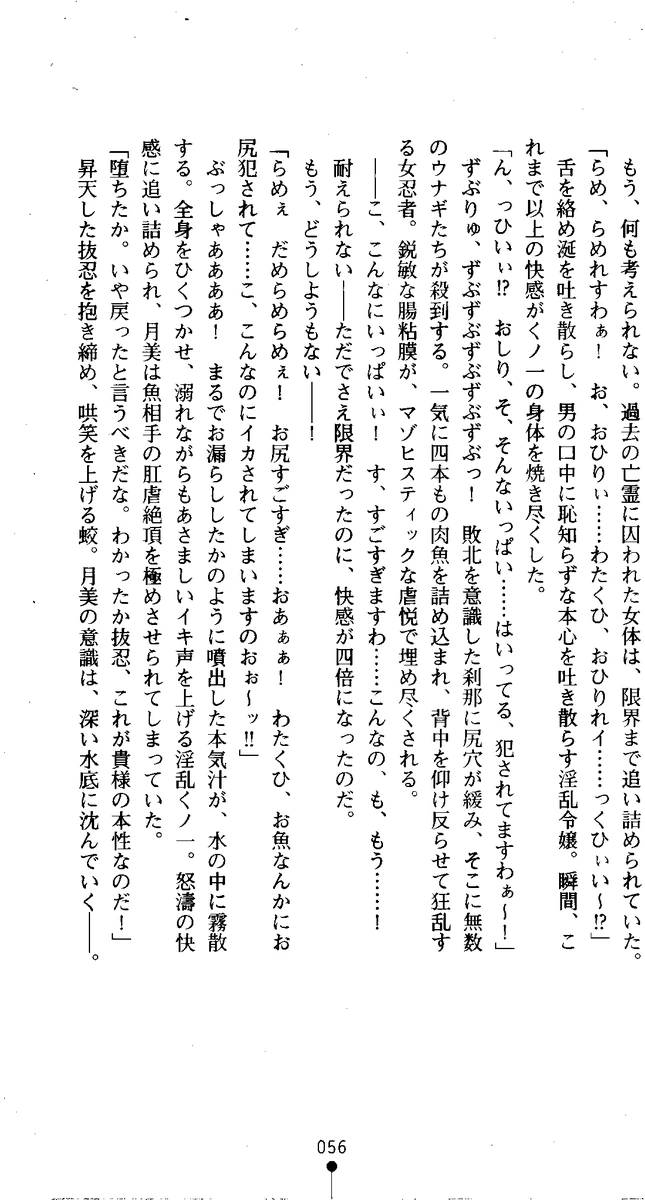 もう、何も考えられない。過去の亡霊に囚われた女体は、限界まで追い詰められていた。
「らめ、らめれすわぁ！　お、おひりぃ……わたくひ、おひりれイ……っくひぃい〜!?」
舌を絡め涎を吐き散らし、男の口中に恥知らずな本心を吐き散らす淫乱令嬢。瞬間、こ
れまで以上の快感がくノ一の身体を焼き尽くした。
「ん、っひいぃ!?　おしり、そ、そんないっぱい……はいってる、犯されてますわぁ〜！」
ずぶりゅ、ずぶずぶずぶずぶずぶっ！　敗北を意識した刹那に尻穴が緩み、そこに無数
のウナギたちが殺到する。一気に四本もの肉魚を詰め込まれ、背中を仰け反らせて狂乱す
る女忍者。鋭敏な腸粘膜が、マゾヒスティックな虐悦で埋め尽くされる。
――こ、こんなにいっぱいぃ！　す、すごすぎますわ……こんなの、も、もう……！
耐えられない――ただでさえ限界だったのに、快感が四倍になったのだ。
もう、どうしようもない――！
「らめぇ　だめらめらめぇ！　お尻すごすぎ……おあぁぁ！　わたくひ、お魚なんかにお
尻犯されて……こ、こんなのにイカされてしまいますのおぉ〜ッ!!」
ぶっしゃああああ！　まるでお漏らししたかのように噴出した本気汁が、水の中に霧散
する。全身をひくつかせ、溺れながらもあさましいイキ声を上げる淫乱くノ一。怒濤の快
感に追い詰められ、月美は魚相手の肛虐絶頂を極めさせられてしまっていた。
「堕ちたか。いや戻ったと言うべきだな。わかったか抜忍、これが貴様の本性なのだ！」
昇天した抜忍を抱き締め、哄笑を上げる蛟。月美の意識は、深い水底に沈んでいく――。
056